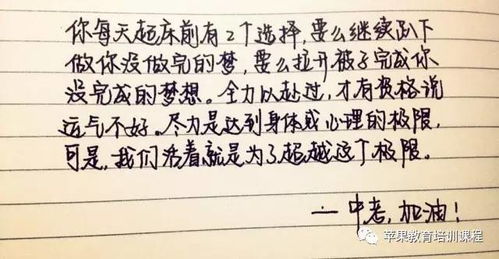 你每天起床前有2个选择,要么继续趴下
做你没做完的梦,要么拉开被子完成你
没完成的梦想。全力以赴过,才有资格说
运气不好。尽力是达到身体或心理的极限,
可是,我们活着就是为了超越这个极限。
—中考,加油!
苹果教育培训课程